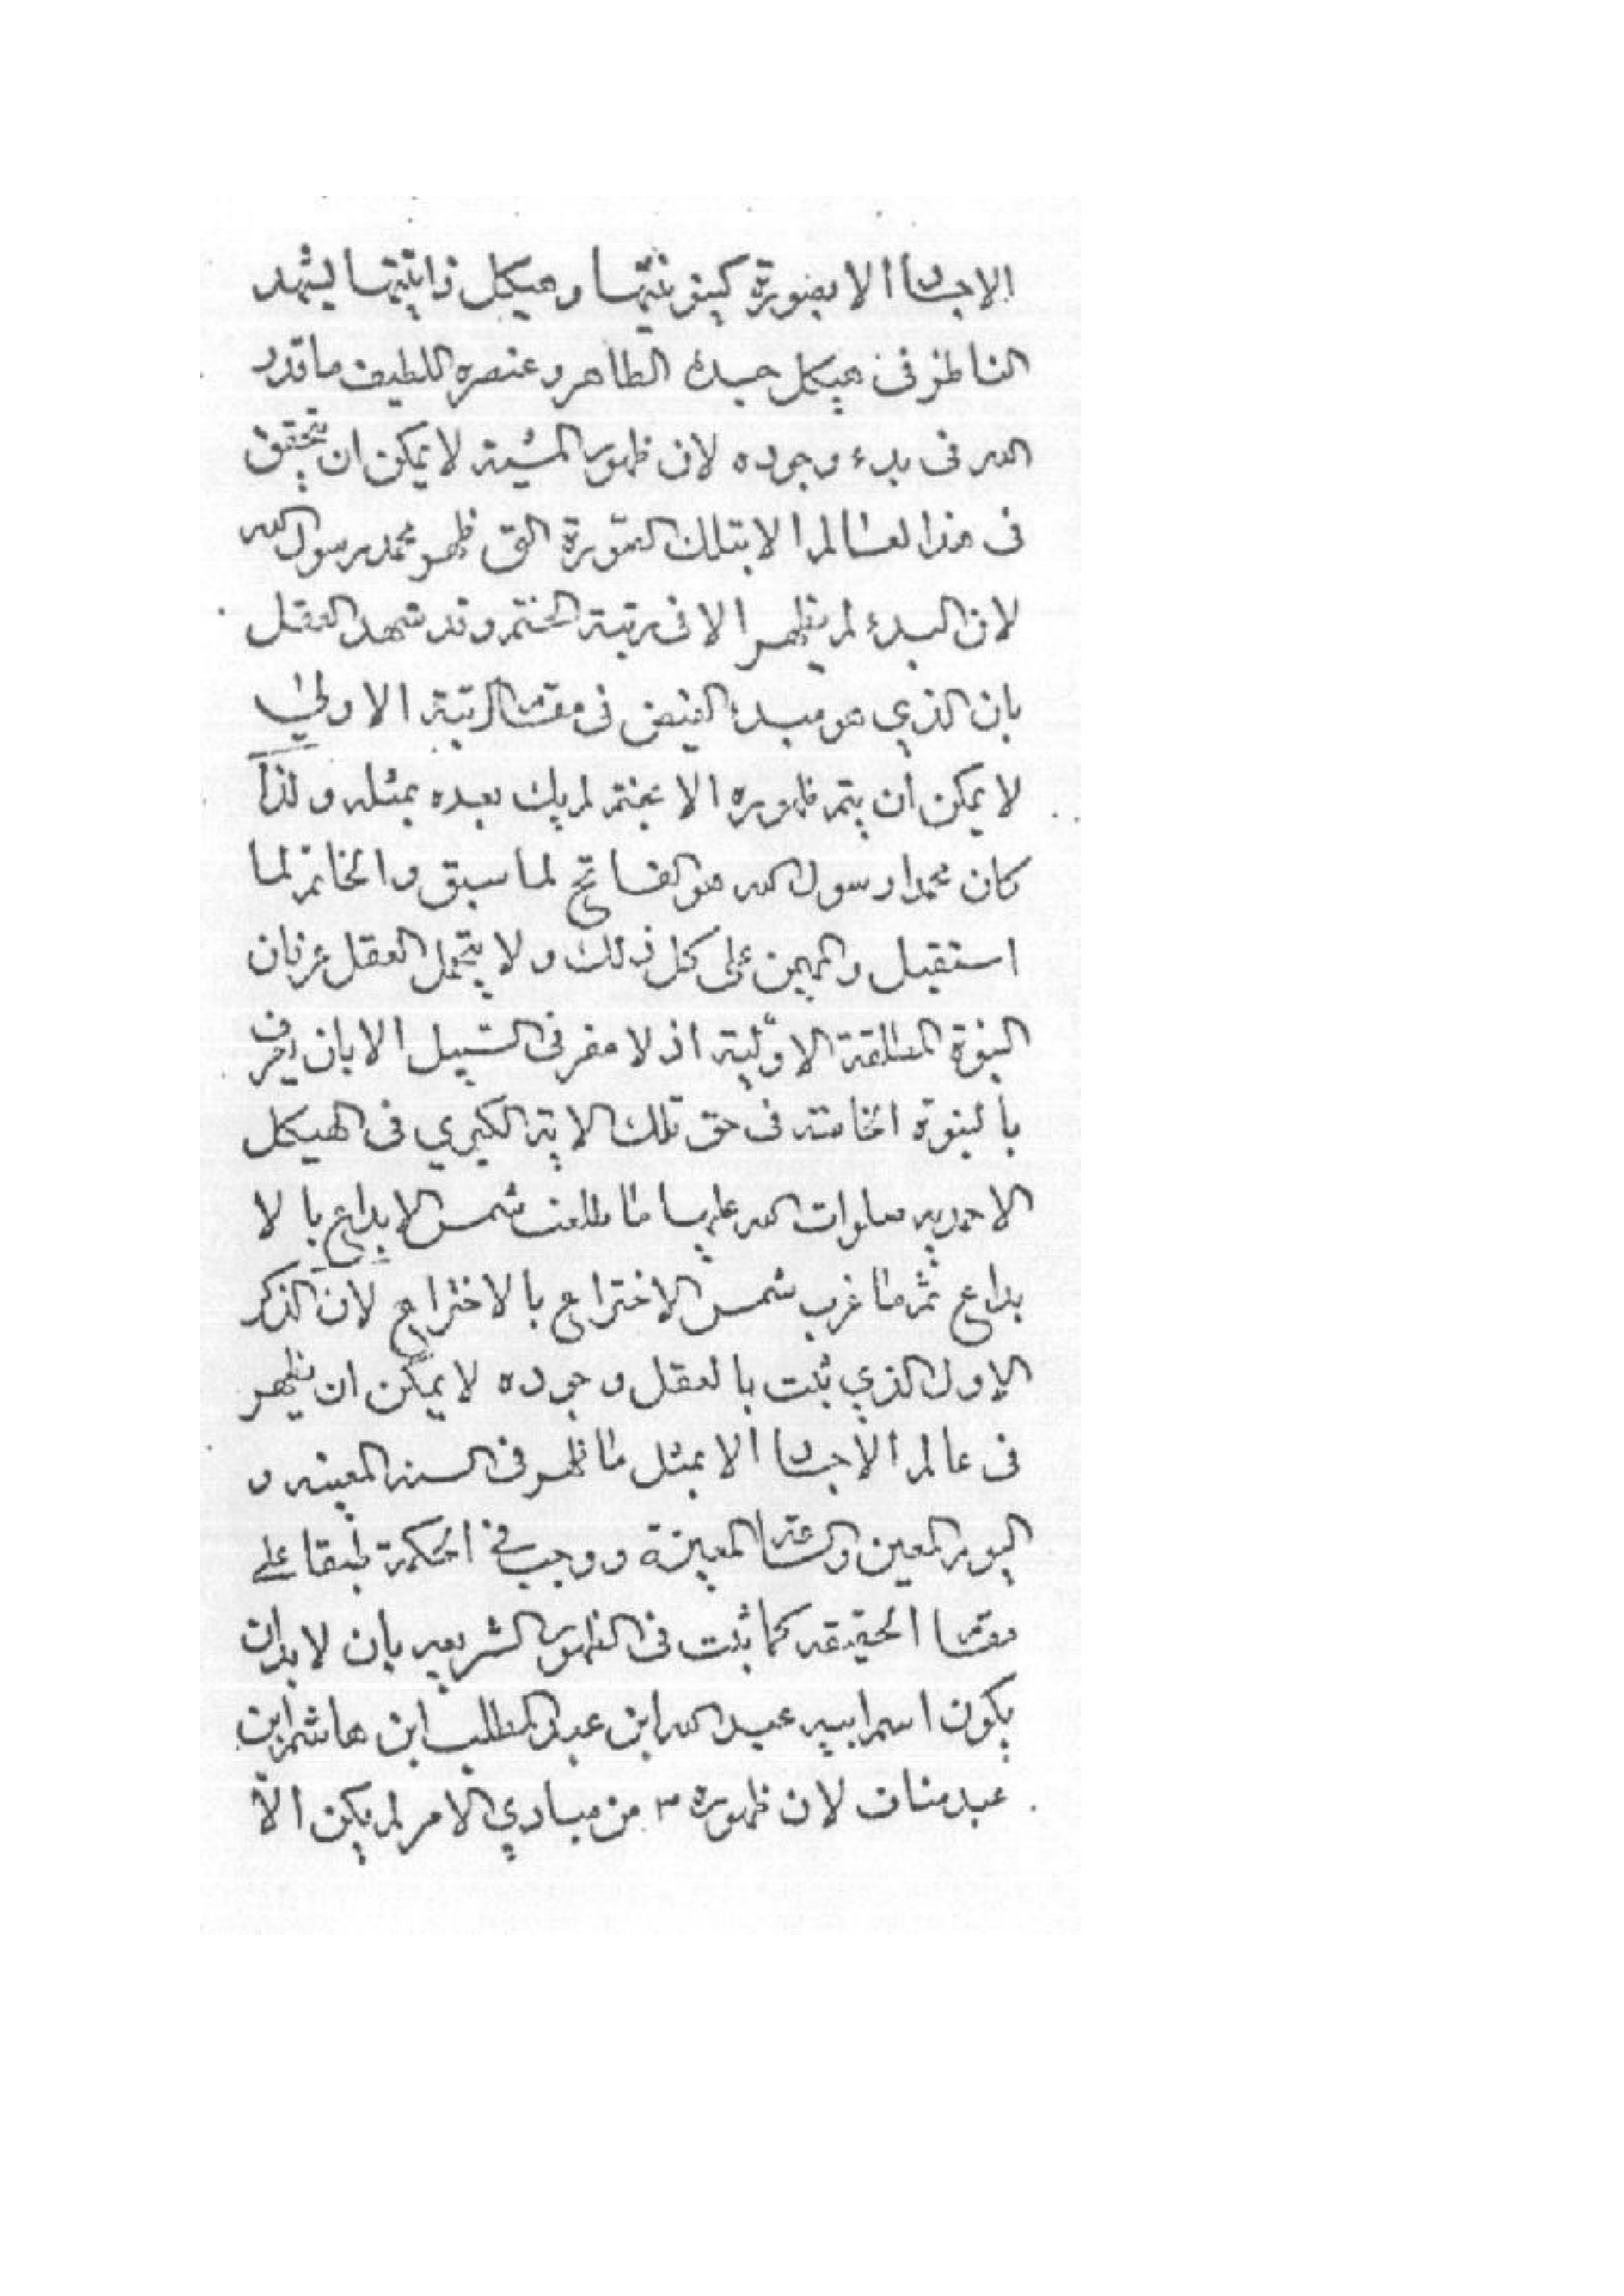 الاجساد الا بصورة كينونيتها و هيكل ذاتيتها ليشهد
الناظر فى هيكل جسده الطاهر و عنصره اللطيف ما قدر
الله فى بدء وجوده لان ظهور المشية لا يمكن ان يتحقق
فى هذا العالم الا بتلك الصورة التى ظهر محمد رسول الله
لان البدء لم يظهر الا فى رتبة الختم و قد شهد العقل
بان الذي هو مبدء الفيض فى مقام الرتبة الاولى
لا يمكن ان يتم ظهوره الا بختم لم يك بعده بمثله و لذا
كان محمدا رسول الله هو الفاتح لما سبق و الخاتم لما
استقبل و المهيمن على كل ذلك و لا يتحمل العقل عرفان
النبوة المطلقة الاولية اذ لا مفر فى السبيل الا بان يعرف
بالنبوة الخاصة فى حق تلك الاية الكبري فى الهيكل
الاحمديه صلوات الله عليها ما طلعت شمس الابداع بالا
بداع ثم ما غرب شمس الاختراع بالاختراع لان الذكر
الاول الذي ثبت بالعقل وجوده لا يمكن ان يظهر
فى عالم الاجساد الا بمثل ما ظهر فى السنه المعينه و
اليوم المعين و الساعة المعينة و وجب في الحكمة طبقا على
مقام الحقيقه كما ثبت فى الظهور الشريعه بان لابد ان
يكون اسم ابيه عبد الله ابن عبد المطلب ابن هاشم ابن
عبد مناف لان ظهوره من مبادي الامر لم يكن الا